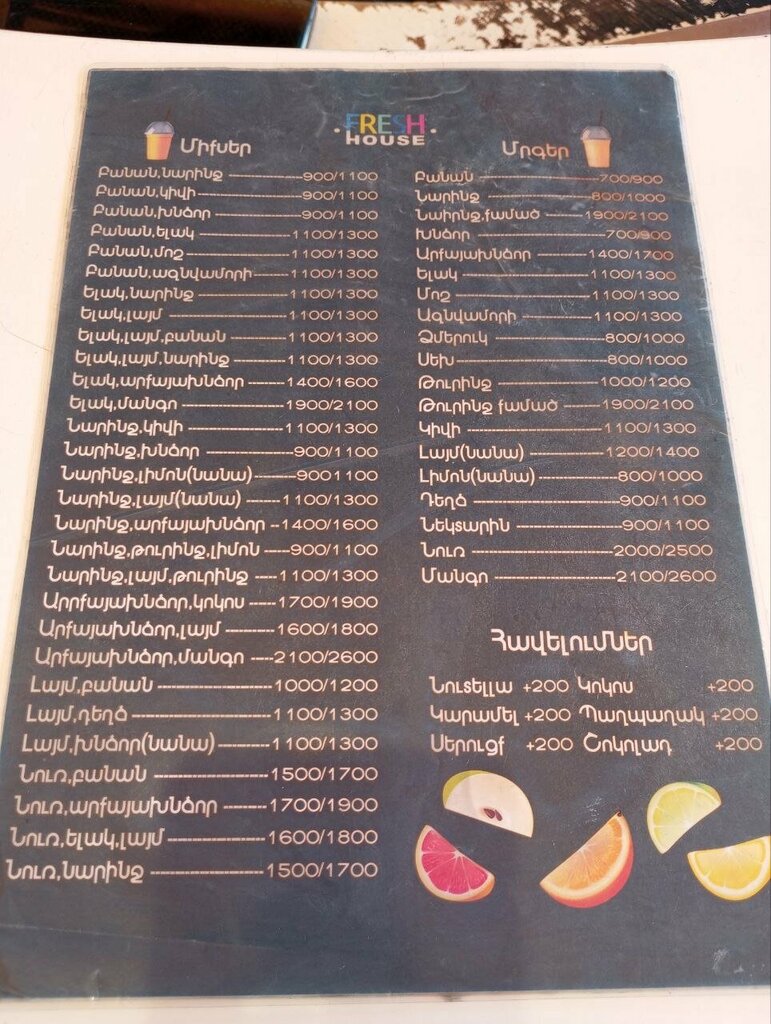 FRESH
HOUSE
Միքսեր
Բանան,նարինջ 900/1100
Բանան,կիվի 900/1100
Բանան,խնձոր 900/1100
Բանան,ելակ 1100/1300
Բանան,մոշ 1100/1300
Բանան,ազնվամորի 1100/1300
Ելակ,նարինջ 1100/1300
Ելակ,լայմ 1100/1300
Ելակ,լայմ,բանան 1100/1300
Ելակ,լայմ,նարինջ 1100/1300
Ելակ,արքայախնձոր 1400/1600
Ելակ,մանգո 1900/2100
Նարինջ,կիվի 1100/1300
Նարինջ,խնձոր 900/1100
Նարինջ,լիմոն(նանա) 9001100
Նարինջ,լայմ(նանա) 1100/1300
Նարինջ,արքայախնձոր 1400/1600
Նարինջ,թուրինջ,լիմոն 900/1100
Նարինջ,լայմ,թուրինջ 1100/1300
Արրքայախնձոր,կոկոս 1700/1900
Արքայախնձոր,լայմ 1600/1800
Արքայախնձոր,մանգո 2100/2600
Լայմ,բանան 1000/1200
Լայմ,դեղձ 1100/1300
Լայմ,խնձոր(նանա) 1100/1300
Նուռ,բանան 1500/1700
Նուռ,արքայախնձոր 1700/1900
Նուռ,ելակ,լայմ 1600/1800
Նուռ,նարինջ 1500/1700
Մրգեր
Բանան 700/900
Նարինջ 800/1000
Նաիրնջ,քամած 1900/2100
Խնձոր 700/900
Արքայախնձոր 1400/1700
Ելակ 1100/1300
Մոշ 1100/1300
Ազնվամորի 1100/1300
Ձմերուկ 800/1000
Սեխ 800/1000
Թուրինջ 1000/1200
Թուրինջ քամած 1900/2100
Կիվի 1100/1300
Լայմ(նանա) 1200/1400
Լիմոն(նանա) 800/1000
Դեղձ 900/1100
Նեկտարին 900/1100
Նուռ 2000/2500
Մանգո 2100/2600
Հավելումներ
Նուտելլա +200 Կոկոս +200
Կարամել +200 Պաղպաղակ +200
Սերուցք +200 Շոկոլադ +200